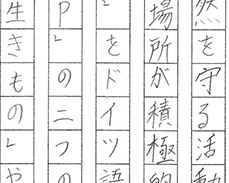 然を守る活動
場所が積極的
」をドイツ語
P」の二つの
生きもの」や